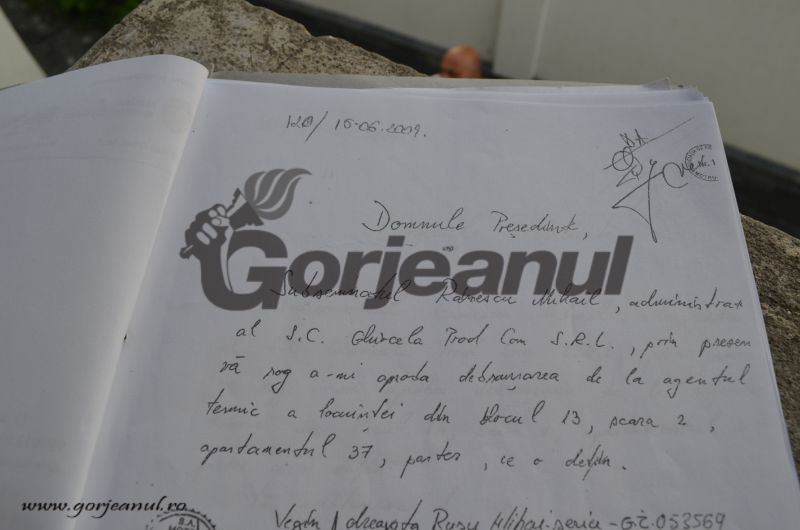 120/ 16.06.2009.
Domnule Președinte,
Gorjeanul
Subsemnatul Mihail, administrator
al S.C. Ghircela Prod Com S.R.L., prin prezen
vă rog a-mi aproba debranșarea de la agentul
termic a locuinței din blocul 13, scara 2,
apartamentul 37, parter, ce o dețin.
www.gorjeanul.ro
Rusu Mihai - seria - GZ 053569
Nr. 1